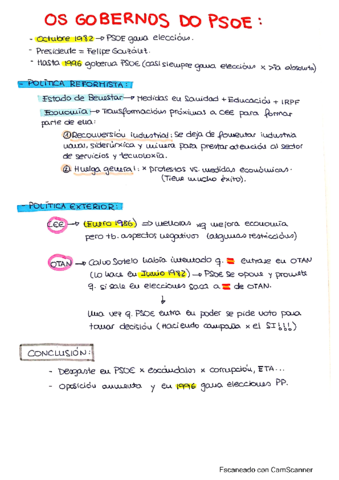 OS GOBERNOS DO PSOE:
- Octubre 1982 → PSOE gana eleccións.
- Presidente = Felipe González.
- Hasta 1996 goberna PSOE (casi siempre gana eleccións x > ía absoluta)
- POLÍTICA REFORMISTA:
Estado de Benestar → Medidas en Sanidad + Educación + IRPF
Economía → Transformacións próximas a CEE para formar
parte de ella:
① Reconversión industrial: Se deja de fomentar industria
naval, siderúrxica y minera para prestar atención al sector
de servicios y tecnoloxía.
② Huelga general: x protestos vs. medidas económicas.
(Tiene mucho éxito).
- POLÍTICA EXTERIOR:
CEE → (Enero 1986) ⇒ melloras xq mejora economía
pero tb. aspectos negativos (algunas restriccións)
OTAN → Calvo Sotelo había intentado q. 🇪🇸 entrase en OTAN
(lo hace en Junio 1982) → PSOE se opuns y promete
q. si sale en eleccións saca a 🇪🇸 de OTAN.
↓
Una vez q. PSOE entra en poder se pide voto para
tomar decisión (Haciendo campaña x el SI!!!)
CONCLUSIÓN:
- Desgaste en PSOE x escándalos x corrupción, ETA...
- Oposición aumenta y en 1996 gana eleccións PP.
Escaneado con CamScanner